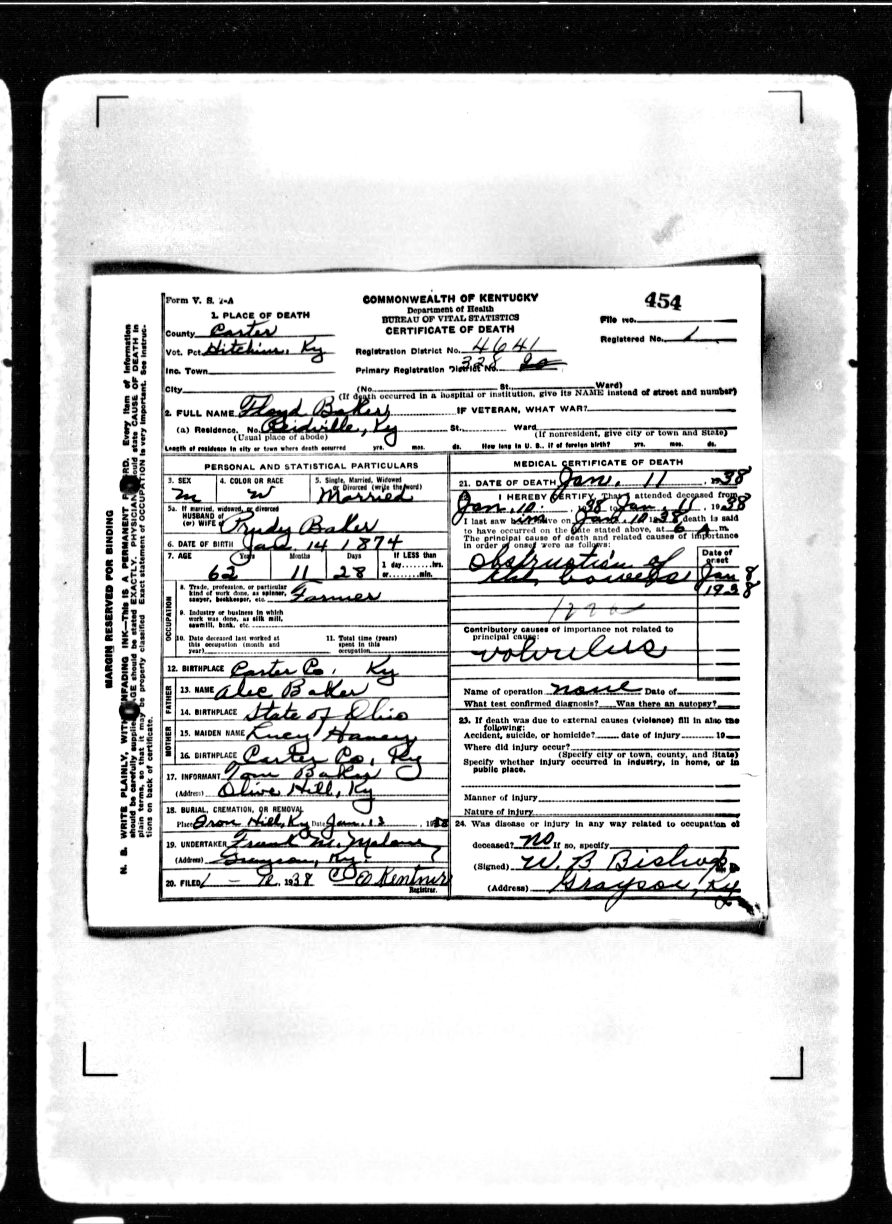 Form V. S. 1-A
COMMONWEALTH OF KENTUCKY
Department of Health
BUREAU OF VITAL STATISTICS
CERTIFICATE OF DEATH
454
File No.
Registered No. 1
1. PLACE OF DEATH
County Carter
Vot. Pct. Hitchins, Ky
Inc. Town
City
Registration District No. 4641
Primary Registration District No. 328 20
(No. St. Ward)
(If death occurred in a hospital or institution, give its NAME instead of street and number)
2. FULL NAME Floyd Baker IF VETERAN, WHAT WAR?
(a) Residence. No. Reidville, Ky St. Ward
(Usual place of abode) (If nonresident, give city or town and State)
Length of residence in city or town where death occurred yrs. mos. ds. How long in U. S., if of foreign birth? yrs. mos. ds.
PERSONAL AND STATISTICAL PARTICULARS
3. SEX
M
4. COLOR OR RACE
W
5. Single, Married, Widowed
or Divorced (write the word)
Married
5a. If married, widowed, or divorced
HUSBAND of
(or) WIFE of Baker
6. DATE OF BIRTH Jan 14 1874
7. AGE Years Months Days If LESS than
1 day hrs.
or min.
62 11 28
OCCUPATION
8. Trade, profession, or particular
kind of work done, as spinner,
sawyer, bookkeeper, etc. Farmer
9. Industry or business in which
work was done, as silk mill,
sawmill, bank, etc.
10. Date deceased last worked at
this occupation (month and
year)
11. Total time (years)
spent in this
occupation
12. BIRTHPLACE Carter Co. Ky
FATHER
13. NAME Alec Baker
14. BIRTHPLACE State of Ohio
MOTHER
15. MAIDEN NAME Lucy Haney
16. BIRTHPLACE Carter Co, Ky
17. INFORMANT Tom Baker
(Address) Olive Hill, Ky
18. BURIAL, CREMATION, OR REMOVAL
Place Iron Hill, Ky Date Jan. 13, 1938
19. UNDERTAKER Frank M. Malone
(Address) Grayson, Ky.
20. FILED 1 - 1938 Kentner
Registrar.
MEDICAL CERTIFICATE OF DEATH
21. DATE OF DEATH Jan. 11 1938
I HEREBY CERTIFY, That I attended deceased from
Jan. 10, 1938 to Jan. 11, 1938
I last saw him alive on Jan. 10 1938 death is said
to have occurred on the date stated above, at 6 A m.
The principal cause of death and related causes of importance
in order of onset were as follows:
Date of
onset
Obstruction of
the bowels
Jan 8
1938
Contributory causes of importance not related to
principal cause:
volvulus
Name of operation none Date of
What test confirmed diagnosis? Was there an autopsy?
23. If death was due to external causes (violence) fill in also the
following:
Accident, suicide, or homicide? date of injury 19
Where did injury occur?
(Specify city or town, county, and State)
Specify whether injury occurred in industry, in home, or in
public place.
Manner of injury
Nature of injury
24. Was disease or injury in any way related to occupation of
deceased? No If so, specify
(Signed) W. B Bishop M. D.
(Address) Grayson, Ky
MARGIN RESERVED FOR BINDING